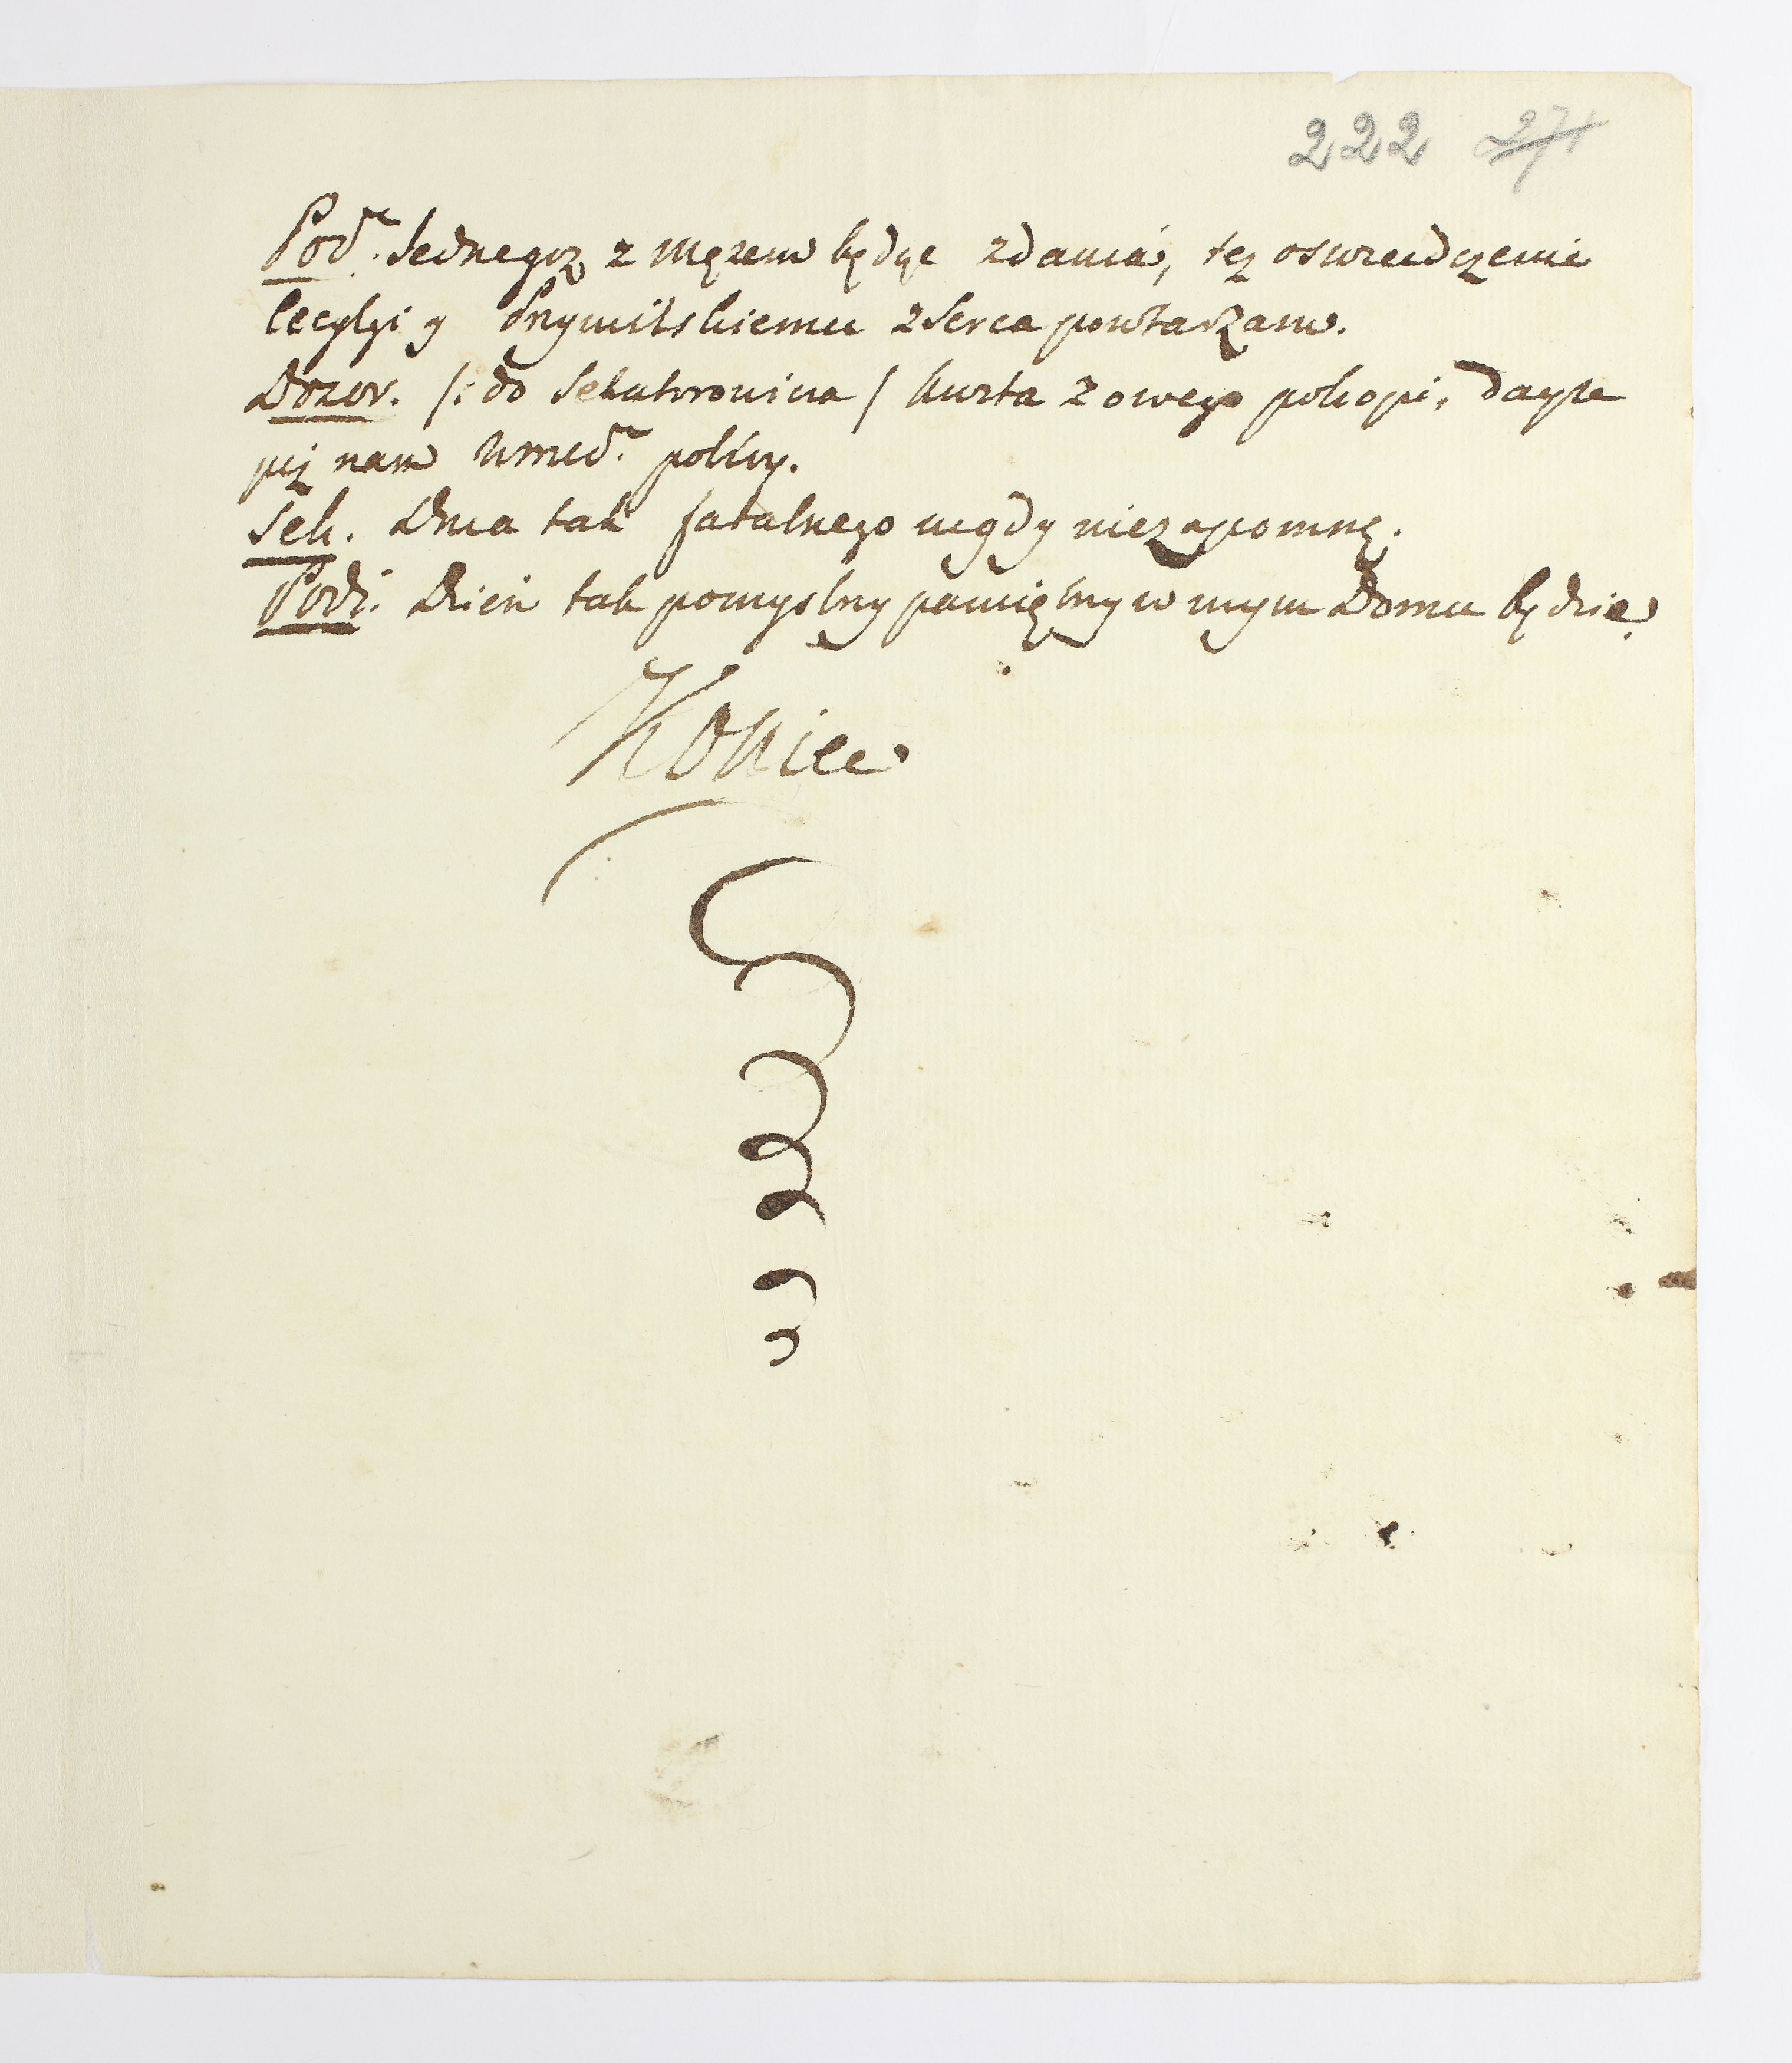 222 271
Pod. Jednegoz z Mężem będąc zdania, też oswiadczenie
Cecylyi y Przymilskiemu z Serca powtarzam.
Dozor. /: do Sekutorowicza / kurta z owego
już nam polćiy.
Sek. Dnia tak fatalnego nigdy niezapomnę.
Podź. Dzień tak pomyslny pamiętny w mym Domu będzie.
Koniec